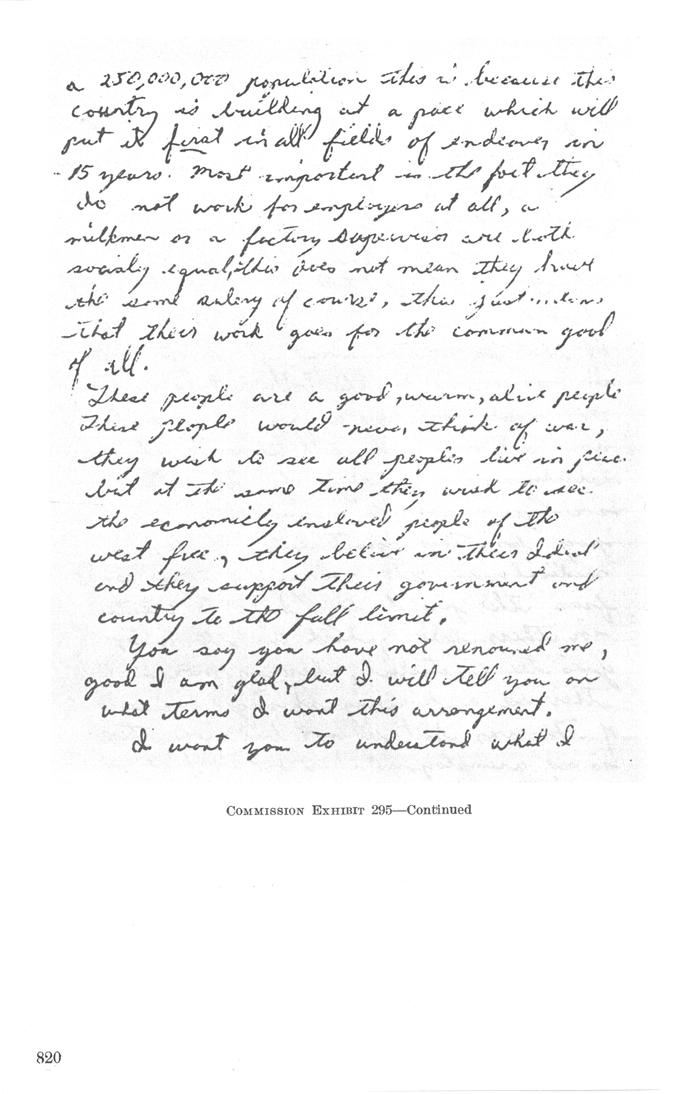 a 250,000,000 population this is because this
country is building at a pace which will
put it first in all fields of endeaver in
15 years. Most important is the fact they
do not work for employers at all, a
milkman or a factory supervisor are both
socialy equal, this does not mean they have
the same salary of course, this just means
that their work goes for the common good
of all.
These people are a good, warm, alive people
These people would never think of war,
they wish to see all peoples live in peace
but at the same time they wish to see
the economicly enslaved people of the
west free, they believe in their Ideal
and they support their government and
country to the full limit.
You say you have not renounced me,
good I am glad, but I will tell you on
what terms I want this arrangement.
I want you to understand what I
COMMISSION EXHIBIT 295—Continued
820